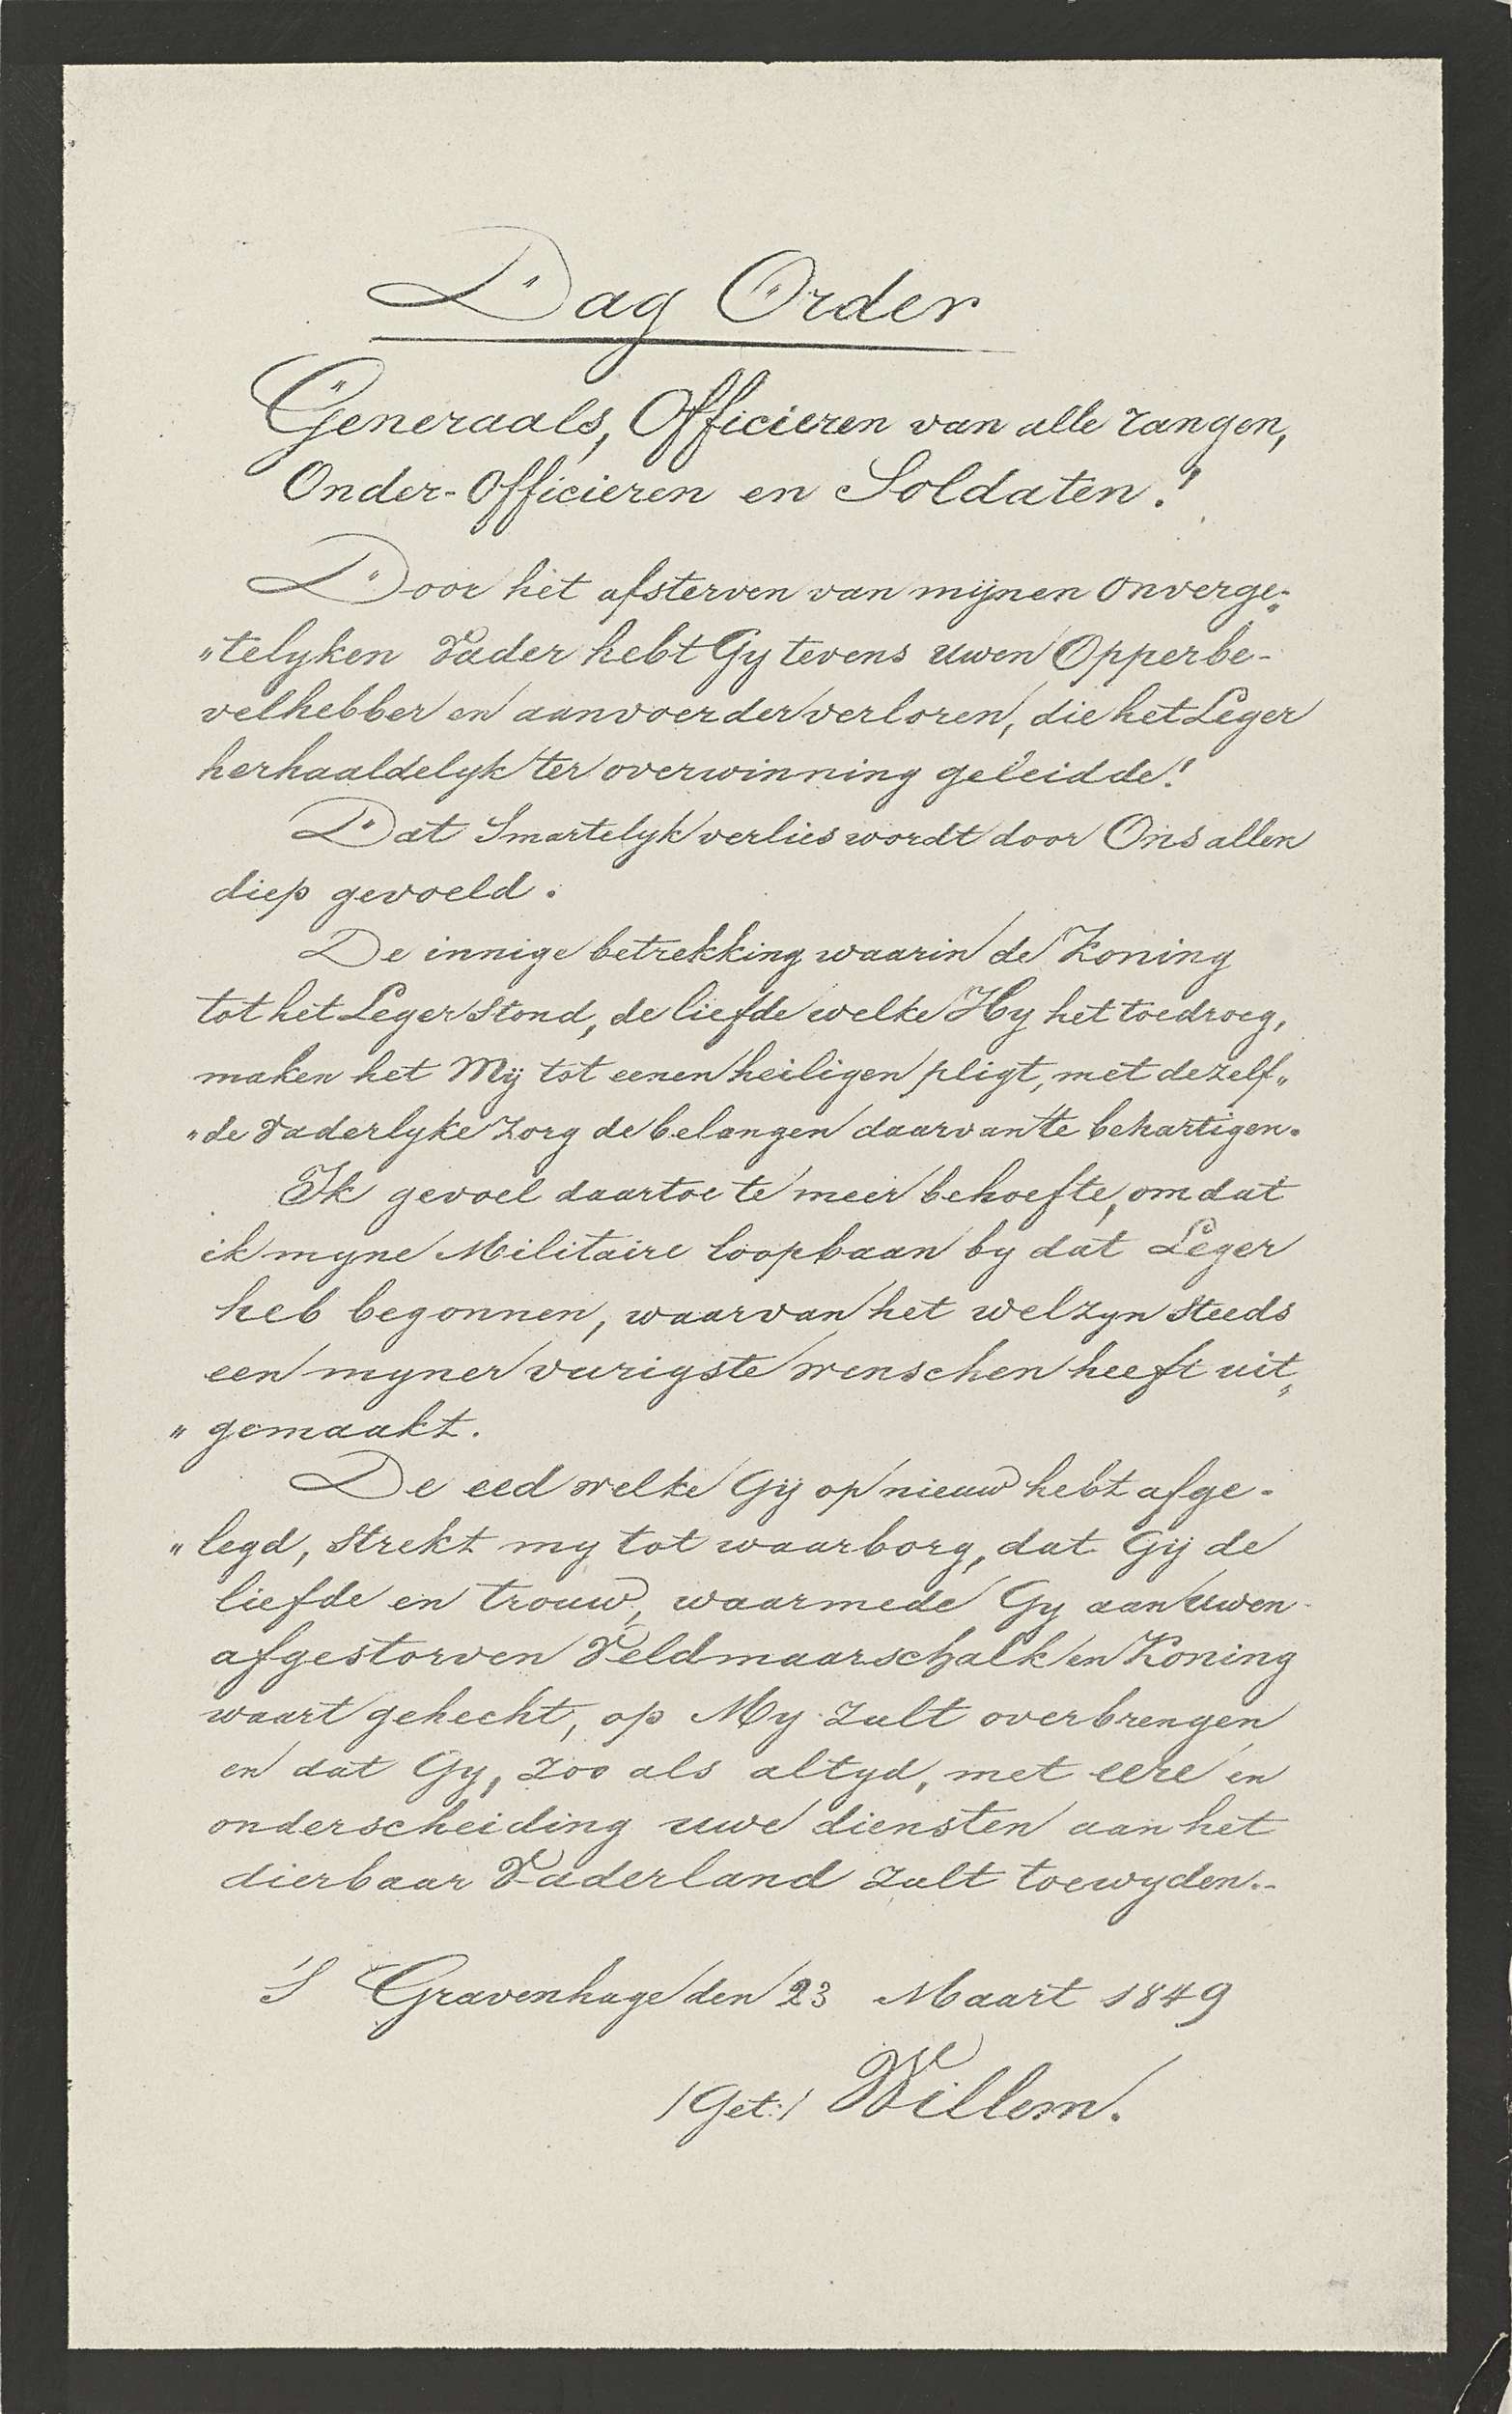 Dag Order
Generaals, Officieren van alle rangen,
Onder-Officieren en Soldaten!
Door het afsterven van mijnen onverge„
„telyken Vader hebt Gy tevens uwen Opperbe-
velhebber en aanvoerder verloren, die het Leger
herhaaldelyk ter overwinning geleidde!
Dat Smartelyk verlies wordt door Ons allen
diep gevoeld.
De innige betrekking waarin de Koning
tot het Leger stond, de liefde welke Hy het toedroeg,
maken het Mij tot eenen heiligen pligt, met dezelf„
„de Vaderlyke zorg de belangen daarvan te behartigen.
Ik gevoel daartoe te meer behoefte, omdat
ik myne Militaire loopbaan by dat Leger
heb begonnen, waarvan het welzyn steeds
een myner vurigste wenschen heeft uit„
„gemaakt.
De eed welke Gij op nieuw hebt afge-
„legd, strekt my tot waarborg, dat Gij de
liefde en trouw, waarmede Gy aan uwen
afgestorven Veldmaarschalk en Koning
waart gehecht, op My zult overbrengen
en dat Gy, zoo als altyd, met eere en
onderscheiding uwe diensten aan het
dierbaar Vaderland zult toewyden.-
'S Gravenhage den 23 Maart 1849
/Get:/ Willem.